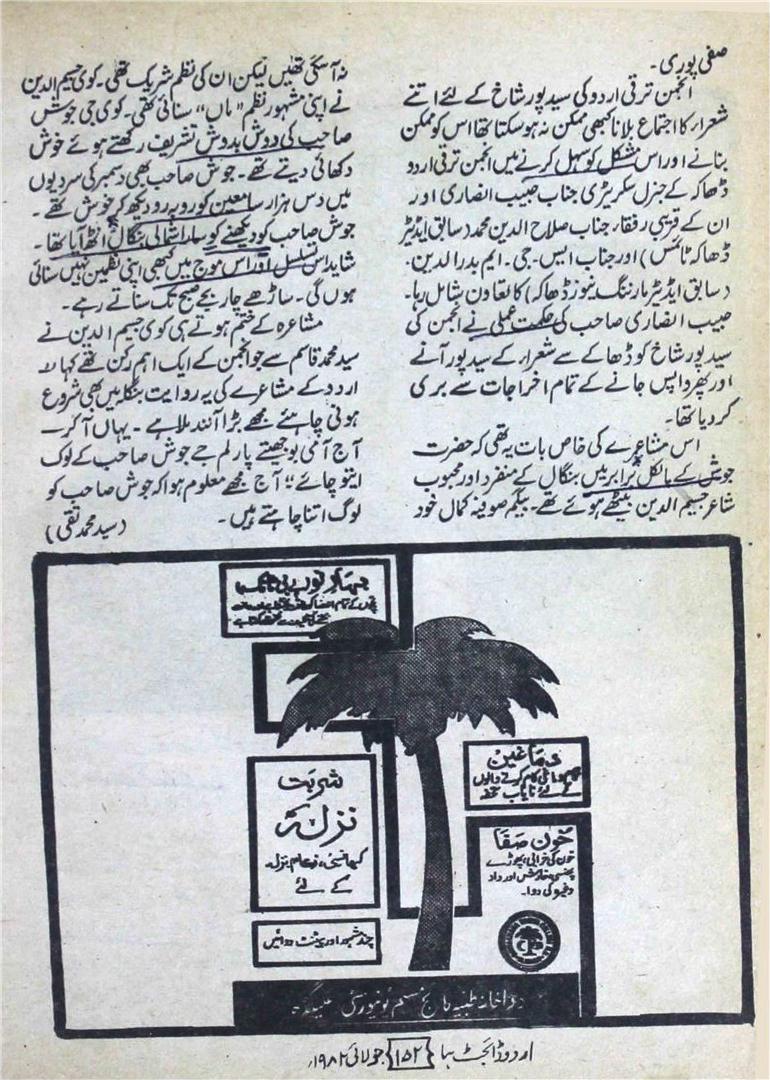 صفی پوری۔
انجمن ترقی اردو کی سید پور شاخ کے لئے اتنے
شعراء کا اجتماع بلانا کبھی ممکن نہ ہو سکتا تھا اس کو ممکن
بنانے اور اس مشکل کو سہل کرنے میں انجمن ترقی اردو
ڈھاکہ کے جنرل سکریٹری جناب حبیب انصاری اور
ان کے قریبی رفقاء، جناب صلاح الدین محمد (سابق ایڈیٹر
ڈھاکہ ٹائمس) اور جناب ایس۔ جی۔ ایم بدرالدین۔
(سابق ایڈیٹر مارننگ نیوز ڈھاکہ) کا تعاون شامل رہا۔
حبیب انصاری صاحب کی حکمت عملی نے انجمن کی
سید پور شاخ کو ڈھاکے سے شعراء کے سید پور آنے
اور پھر واپس جانے کے تمام اخراجات سے بری
کر دیا تھا۔
اس مشاعرے کی خاص بات یہ تھی کہ حضرت
جوش کے بالکل برابر میں بنگال کے منفرد اور محبوب
شاعر جسیم الدین بیٹھے ہوئے تھے۔ بیگم صوفیہ کمال خود
نہ آسکی تھیں لیکن ان کی نظم شریک تھی۔ کوی جسیم الدین
نے اپنی مشہور نظم "ماں" سنائی تھی۔ کوی جی جوش
صاحب کی دوش بدوش تشریف رکھتے ہوئے خوش
دکھائی دیتے تھے۔ جوش صاحب بھی دسمبر کی سردیوں
میں دس ہزار سامعین کو روبرو دیکھ کر خوش تھے۔
جوش صاحب کو دیکھنے کو سارا شمالی بنگال اٹھ آیا تھا۔
شاید اس تسلسل اور اس موج میں کبھی اپنی نظمیں نہیں سنائی
ہوں گی۔ ساڑھے چار بجے صبح تک سناتے رہے۔
مشاعرہ کے ختم ہوتے ہی کوی جسیم الدین نے
سید محمد قاسم سے جو انجمن کے ایک اہم رکن تھے کہا
اردو کے مشاعرے کی یہ روایت بنگلہ میں بھی شروع
ہونی چاہئے مجھے بڑا آنند ملا ہے۔ یہاں آ کر۔
آج آمی بوجھتے پارلم جے جوش صاحب کے لوک
ایتو چائے" آج مجھے معلوم ہوا کہ جوش صاحب کو
لوگ اتنا چاہتے ہیں۔
(سید محمد تقی)
دماغین
کے لئے نایاب تحفہ
شربت
نزلہ
کھانسی، زکام، نزلہ
کے لئے
خون صفا
خون کی خرابی، پھوڑے
پھنسی، خارش اور داد
وغیرہ کی دوا۔
چند مشہور اور پیٹنٹ دوائیں
دواخانہ طبیہ کالج مسلم یونیورسٹی علیگڑھ
اردو ڈائجسٹ ہما ۱۵۲ جولائی ۱۹۸۲ء